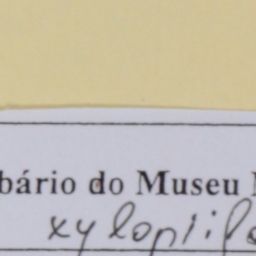 bário do Museu
xylopiifo